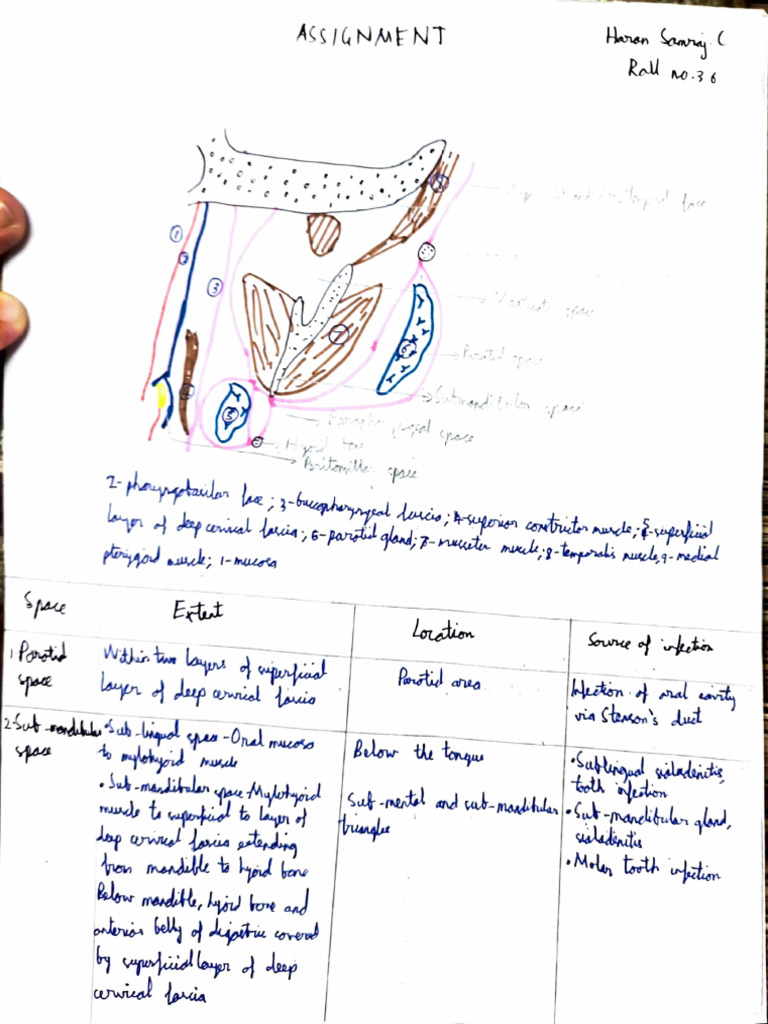 ASSIGNMENT
Haran Samraj. C
Roll no. 36
1
2
3
5
6
7
Masticator space
Parotid space
Submandibular space
Parapharyngeal space
Hyoid bone
space
2-pharyngobasilar face; 3-buccopharyngeal fascia; 4-superior constrictor muscle; 5-superficial
layer of deep cervical fascia; 6-parotid gland; 7-masseter muscle; 8-temporalis muscle, 9-medial
pterygoid muscle; 1-mucosa
Space
Extent
Location
Source of infection
1. Parotid
space
Within two layers of superficial
layer of deep cervical fascia
Parotid area
Infection of oral cavity
via Stenson's duct
2. Sub-mandibular
space
• Sub-lingual space - Oral mucosa
to mylohyoid muscle
• Sub-mandibular space - Mylohyoid
muscle to superficial to layer of
deep cervical fascia extending
from mandible to hyoid bone
Below mandible, hyoid bone and
anterior belly of digastric covered
by superficial layer of deep
cervical fascia
Below the tongue
Sub-mental and sub-mandibular
triangles
• Sublingual sialadenitis,
tooth infection
• Sub-mandibular gland,
sialadenitis
• Molar tooth infection